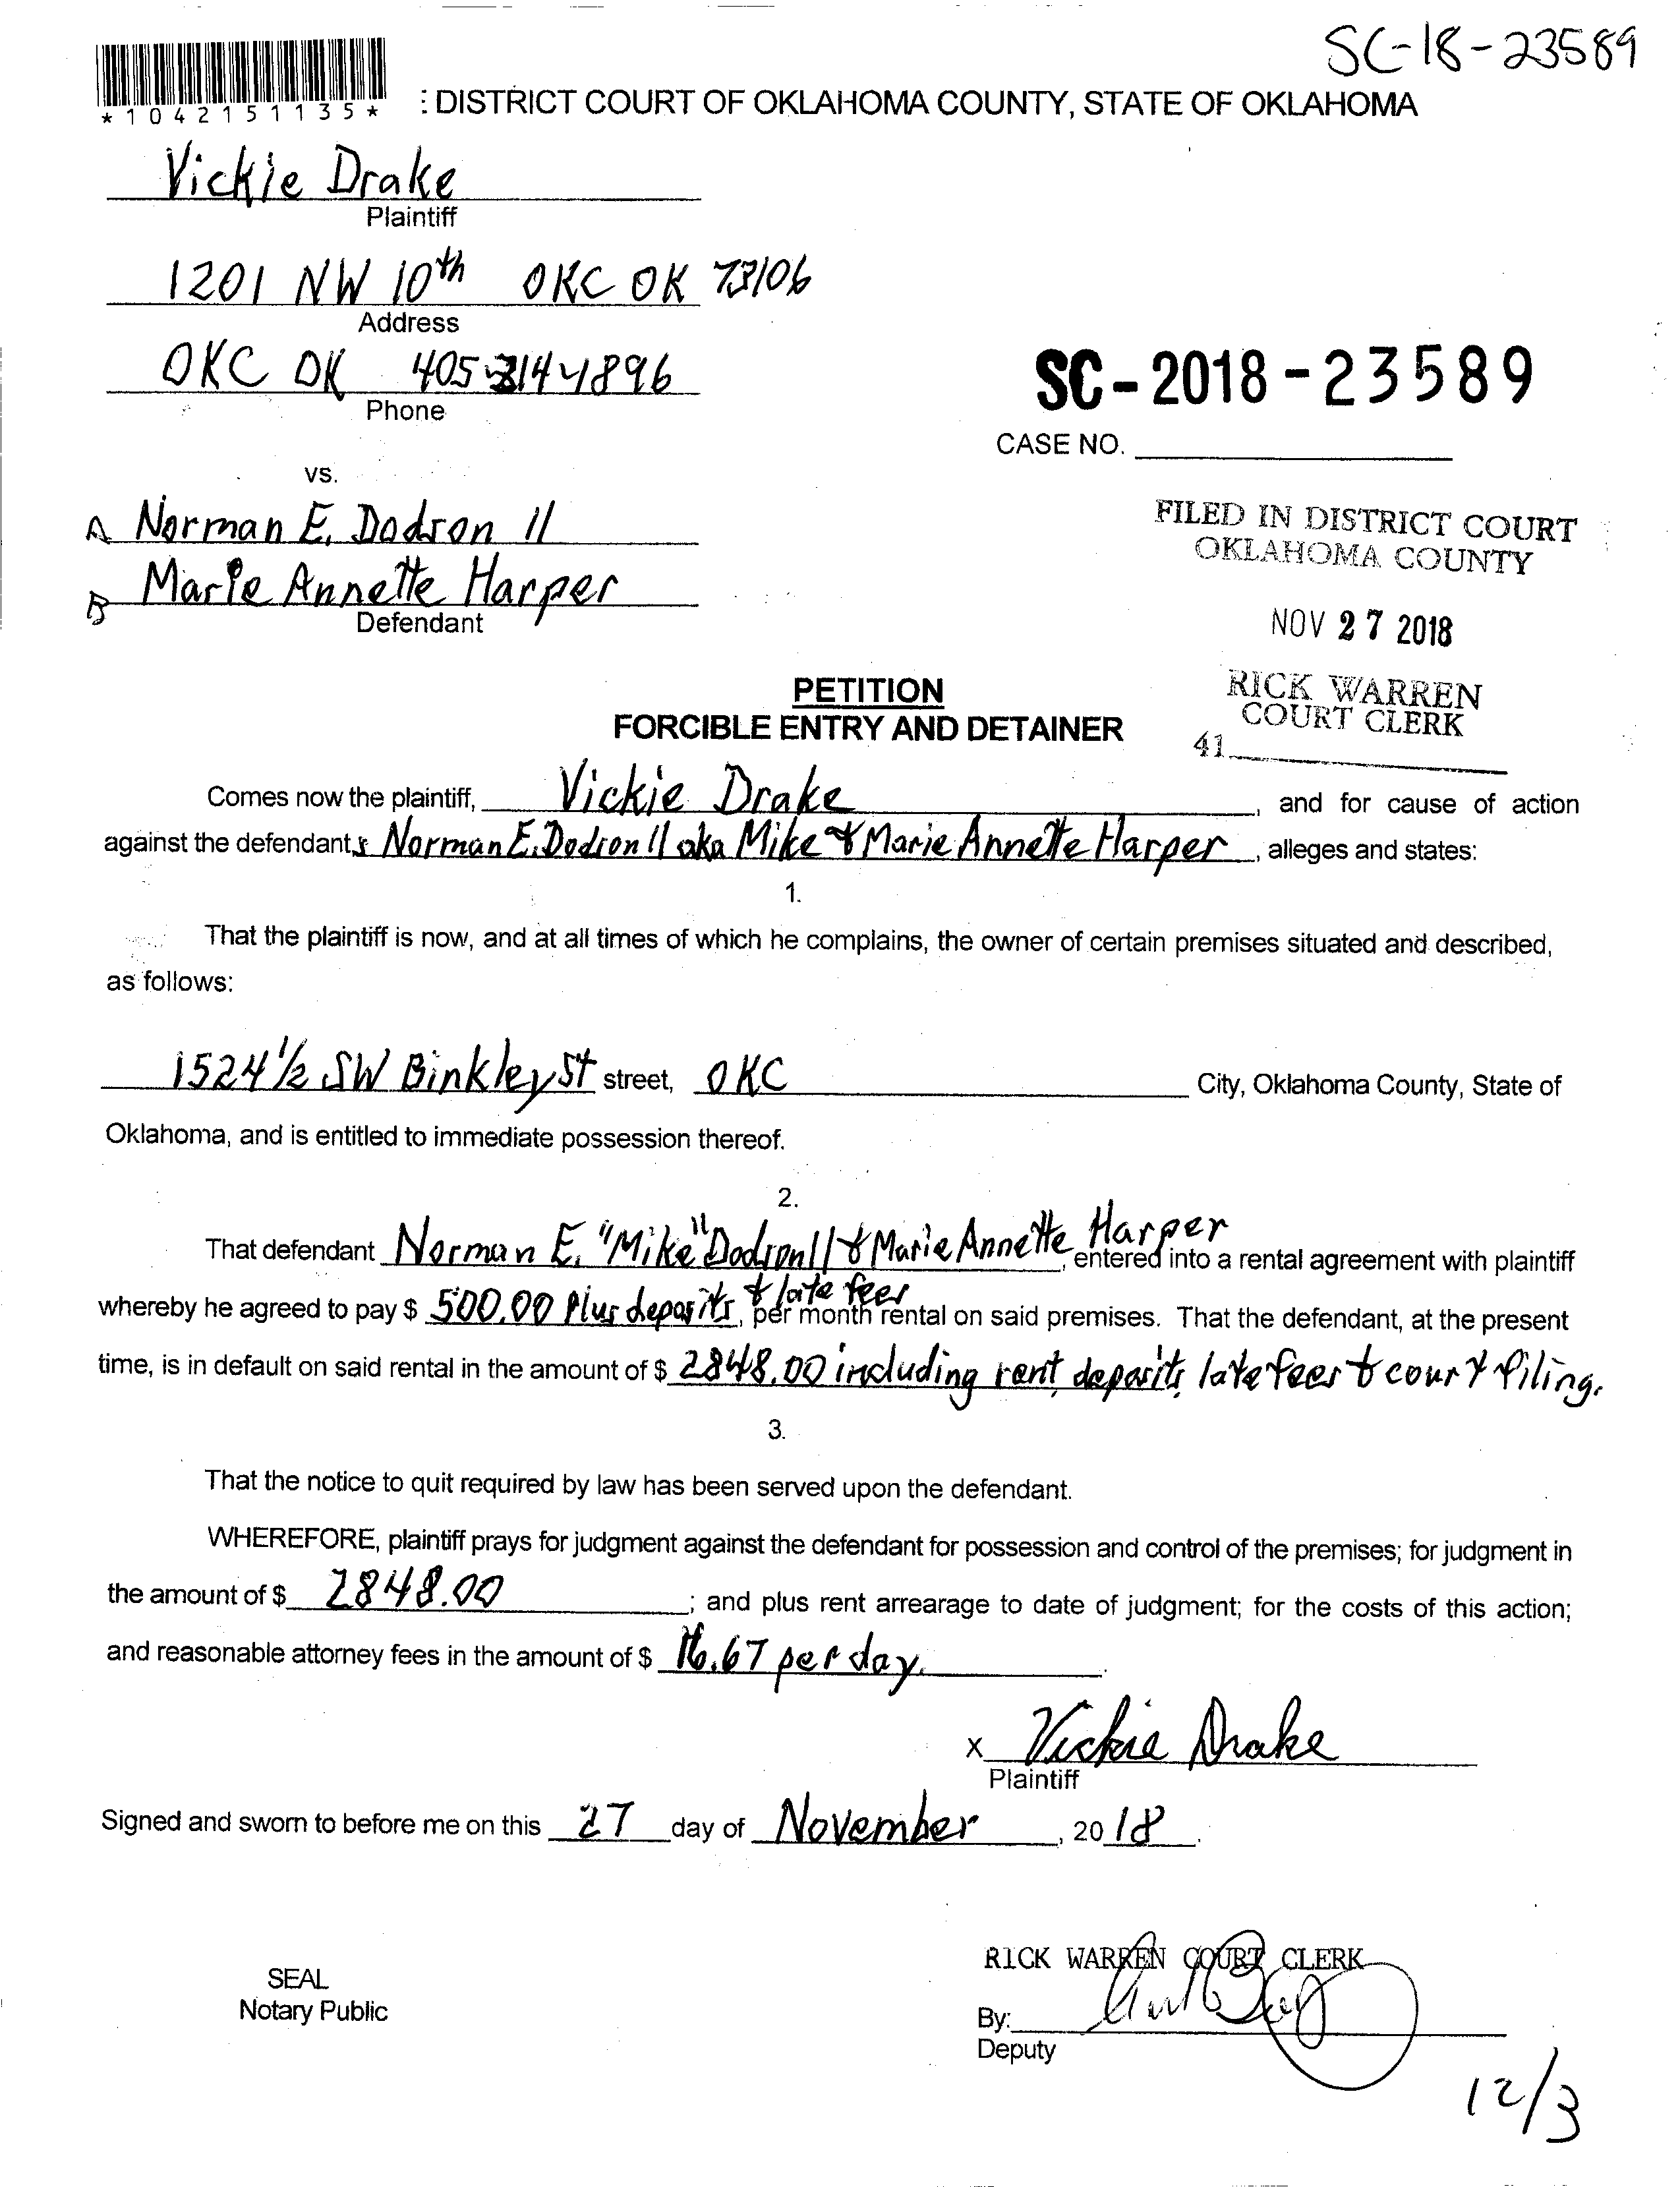 SC-18-23589
*1042151135*
: DISTRICT COURT OF OKLAHOMA COUNTY, STATE OF OKLAHOMA
Vickie Drake
Plaintiff
1201 NW 10th OKC OK 73106
Address
OKC OK 405 314 4896
Phone
SC-2018-23589
CASE NO.
vs.
A Norman E. Dodson II
B Marie Annette Harper
Defendant
FILED IN DISTRICT COURT
OKLAHOMA COUNTY
NOV 27 2018
RICK WARREN
COURT CLERK
41
PETITION
FORCIBLE ENTRY AND DETAINER
Comes now the plaintiff, Vickie Drake, and for cause of action
against the defendants Norman E. Dodson II aka Mike & Marie Annette Harper, alleges and states:
1.
That the plaintiff is now, and at all times of which he complains, the owner of certain premises situated and described,
as follows:
1524 1/2 SW Binkley St street, OKC City, Oklahoma County, State of
Oklahoma, and is entitled to immediate possession thereof.
2.
That defendant Norman E. "Mike" Dodson II & Marie Annette Harper, entered into a rental agreement with plaintiff
whereby he agreed to pay $ 500.00 Plus deposits & late fees, per month rental on said premises. That the defendant, at the present
time, is in default on said rental in the amount of $ 2848.00 including rent, deposits, late fees & court filing.
3.
That the notice to quit required by law has been served upon the defendant.
WHEREFORE, plaintiff prays for judgment against the defendant for possession and control of the premises; for judgment in
the amount of $ 2848.00; and plus rent arrearage to date of judgment; for the costs of this action;
and reasonable attorney fees in the amount of $ 16.67 per day.
x Vickie Drake
Plaintiff
Signed and sworn to before me on this 27 day of November, 2018.
SEAL
Notary Public
RICK WARREN COURT CLERK
By:
Deputy
12/3